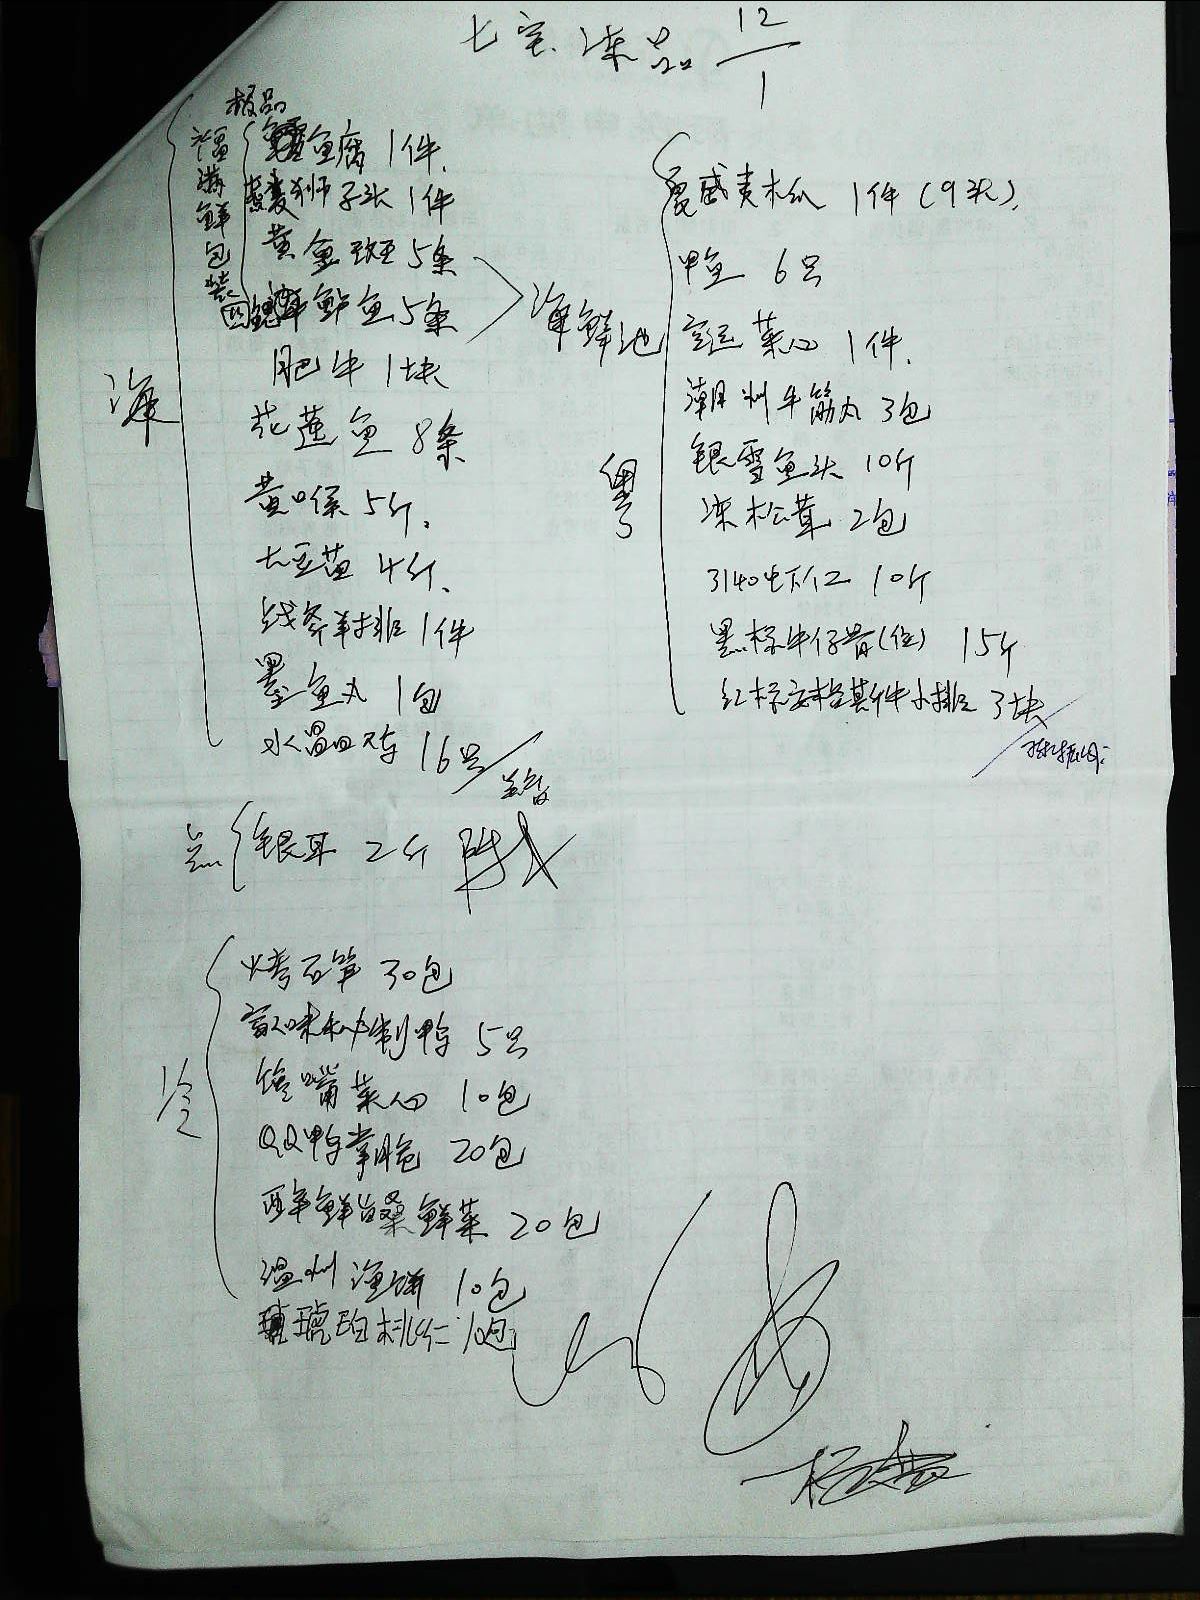 七宝冻品 12/1
极品
鱼腐 1件
狮子头 1件
黄鱼斑 5条
鲈鱼 5条
海鲜池
肥牛 1块
花莲鱼 8条
黄喉 5斤
大豆苗 4斤
战斧羊排 1件
墨鱼丸 1包
水晶田鸡 16只
海
福满鲜包装
夏威夷木瓜 1件(9头)
甲鱼 6只
空运菜心 1件
潮州牛筋丸 3包
银雪鱼头 10斤
冻松茸 2包
3140虾仁 10斤
黑标牛仔骨(位) 15斤
红标安格斯牛小排 3块
粤
点
银耳 2斤
冷
烤石笋 30包
秘制鸭 5只
馋嘴菜心 10包
QQ鸭掌 20包
鲜菜 20包
温州鱼饼 10包
琥珀桃仁 10包